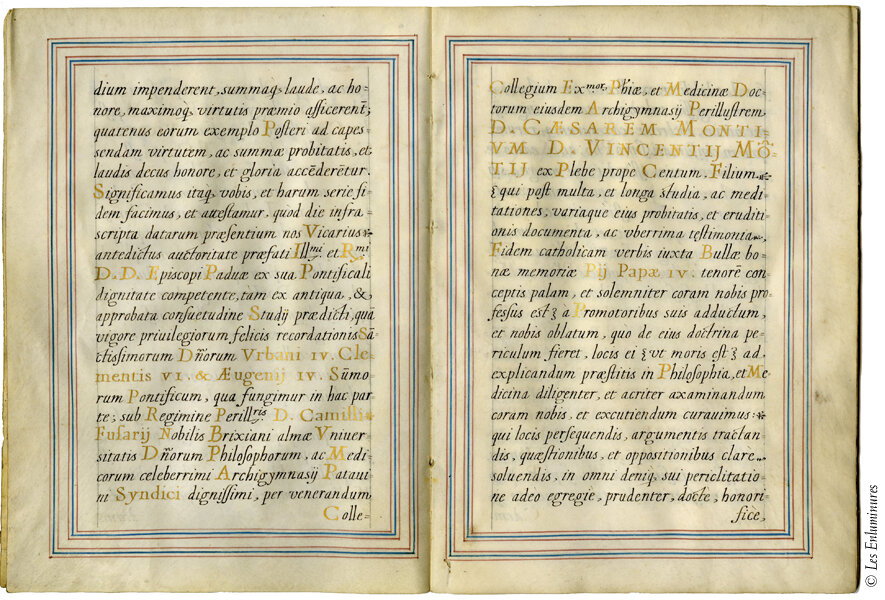 dium impenderent, summaq; laude, ac ho-
nore, maximoq; virtutis præmio afficerent;
quatenus eorum exemplo Posteri ad capes-
sendam virtutem, ac summæ probitatis, et
laudis decus honore, et gloria accēderētur.
Significamus itaq; vobis, et harum serie fi-
dem facimus, et attestamur, quod die infra-
scripta datarum præsentium nos Vicarius
antedictus auctoritate præfati Ill.mi et R.mi
D. D. Episcopi Paduæ ex sua Pontificali
dignitate competente, tam ex antiqua, &
approbata consuetudine Studij prædicti, qua
vigore priuilegiorum felicis recordationis Sā-
ctissimorum Dñorum Vrbani IV. Cle-
mentis VI. & Æugenij IV. Sūmo-
rum Pontificum, qua fungimur in hac par-
te; sub Regimine Perill.ris D. Camilli
Fusarij Nobilis Brixiani almæ Vniuer-
sitatis Dñorum Philosophorum, ac Medi-
corum celeberrimi Archigymnasij Pataui-
ni Syndici dignissimi, per venerandum
Colle-
Collegium Ex.mor. Phiæ, et Medicinæ Doc-
torum eiusdem Archigymnasij Perillustrem
D. CÆSAREM MONTI-
VM D. VINCENTIJ MÕ-
TIJ ex Plebe propè Centum Filium
qui post multa, et longa studia, ac medi-
tationes, variaque eius probitatis, et eruditi-
onis documenta, ac vberrima testimonia,
Fidem catholicam verbis iuxta Bullæ bo-
næ memoriæ Pij Papæ IV. tenorē con-
ceptis palam, et solemniter coram nobis pro-
fessus est ʒ a Promotoribus suis adductum,
et nobis oblatum, quo de eius doctrina pe-
riculum fieret, locis ei ʒ vt moris est ʒ ad
explicandum præstitis in Philosophia, et Me-
dicina diligenter, et acriter axaminandum
coram nobis, et excutiendum curauimus:
qui locis persequendis, argumentis tractan-
dis, quæstionibus, et oppositionibus clare
soluendis, in omni deniq; sui periclitatio-
ne adeo egregie, prudenter, docte, honori-
fice,
© Les Enluminures